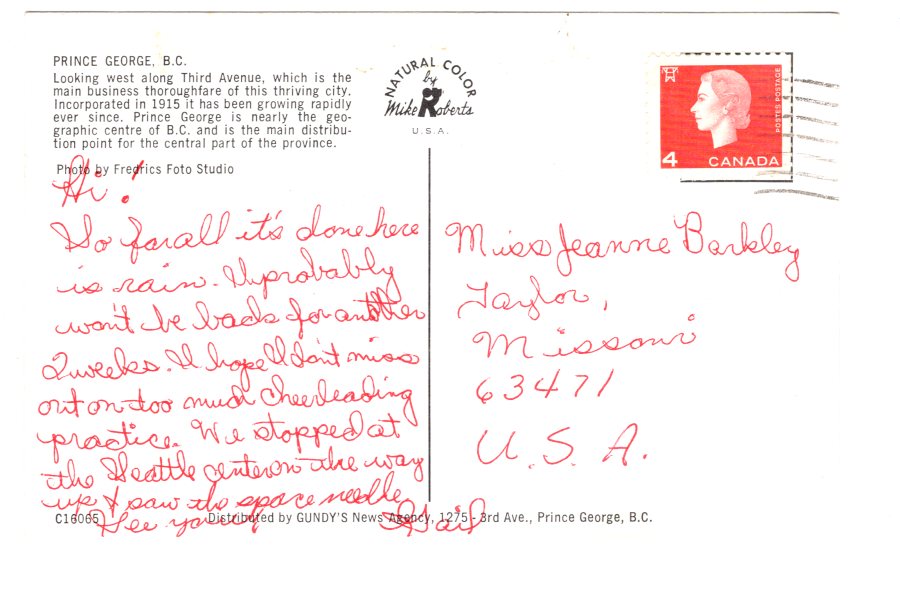 PRINCE GEORGE, B.C.
Looking west along Third Avenue, which is the
main business thoroughfare of this thriving city.
Incorporated in 1915 it has been growing rapidly
ever since. Prince George is nearly the geo-
graphic centre of B.C. and is the main distribu-
tion point for the central part of the province.
Photo by Fredrics Foto Studio
NATURAL COLOR
by
Mike Roberts
U.S.A.
POSTES POSTAGE
4 CANADA
Hi!
So far all it's done here
is rain. I'll probably
won't be back for another
2 weeks. I hope I don't miss
out on too much cheerleading
practice. We stopped at
the Seattle center on the way
up & saw the space needle
See you
Gail
Miss Jeanne Barkley
Taylor,
Missouri
63471
U.S.A.
C16065
Distributed by GUNDY'S News Agency, 1275 - 3rd Ave., Prince George, B.C.